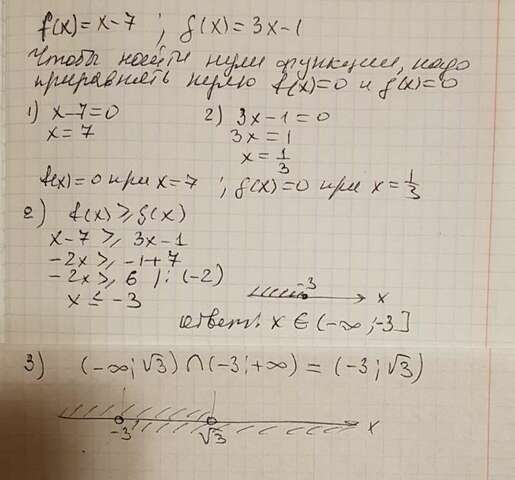 f(x)=x-7 ; g(x)=3x-1
Чтобы найти нули функции, надо
приравнять нулю f(x)=0 и g(x)=0
1) x-7=0 2) 3x-1=0
x=7 3x=1
x=1/3
f(x)=0 при x=7 ; g(x)=0 при x=1/3
2) f(x)⩾g(x)
x-7⩾3x-1
-2x⩾-1+7
-2x⩾6 |:(-2)
x≤-3
-3 x
ответ: x∈(-∞;-3]
3) (-∞;√3)∩(-3;+∞)=(-3;√3)
-3 √3 x